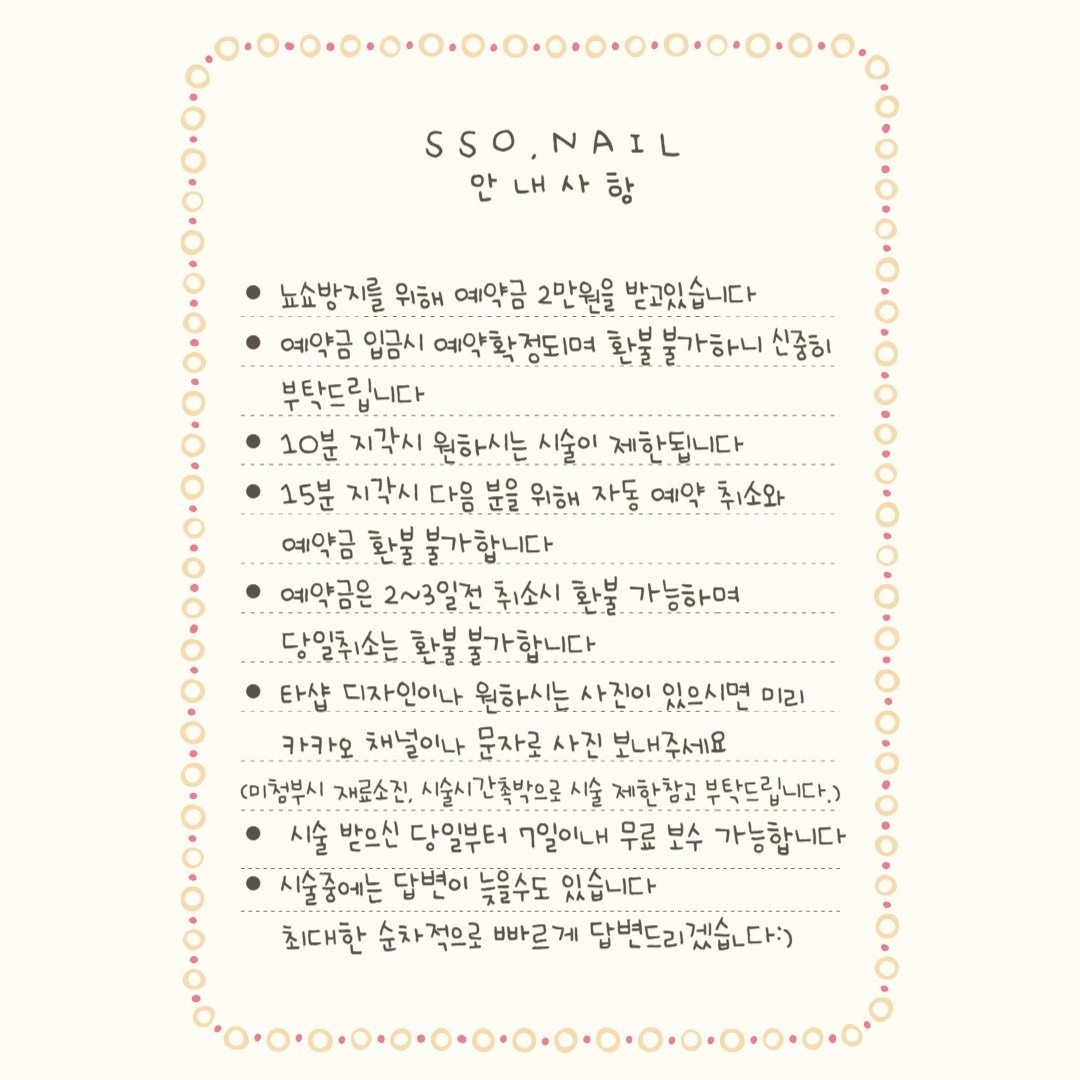 SSO.NAIL
안내사항
● 뇨쇼방지를 위해 예약금 2만원을 받고있습니다
● 예약금 입금시 예약확정되며 환불 불가하니 신중히
부탁드립니다
● 10분 지각시 원하시는 시술이 제한됩니다
● 15분 지각시 다음 분을 위해 자동 예약 취소와
예약금 환불 불가합니다
● 예약금은 2~3일전 취소시 환불 가능하며
당일취소는 환불 불가합니다
● 타샵 디자인이나 원하시는 사진이 있으시면 미리
카카오 채널이나 문자로 사진 보내주세요
(미첨부시 재료소진, 시술시간촉박으로 시술 제한참고 부탁드립니다.)
● 시술 받으신 당일부터 7일이내 무료 보수 가능합니다
● 시술중에는 답변이 늦을수도 있습니다
최대한 순차적으로 빠르게 답변드리겠습니다:)